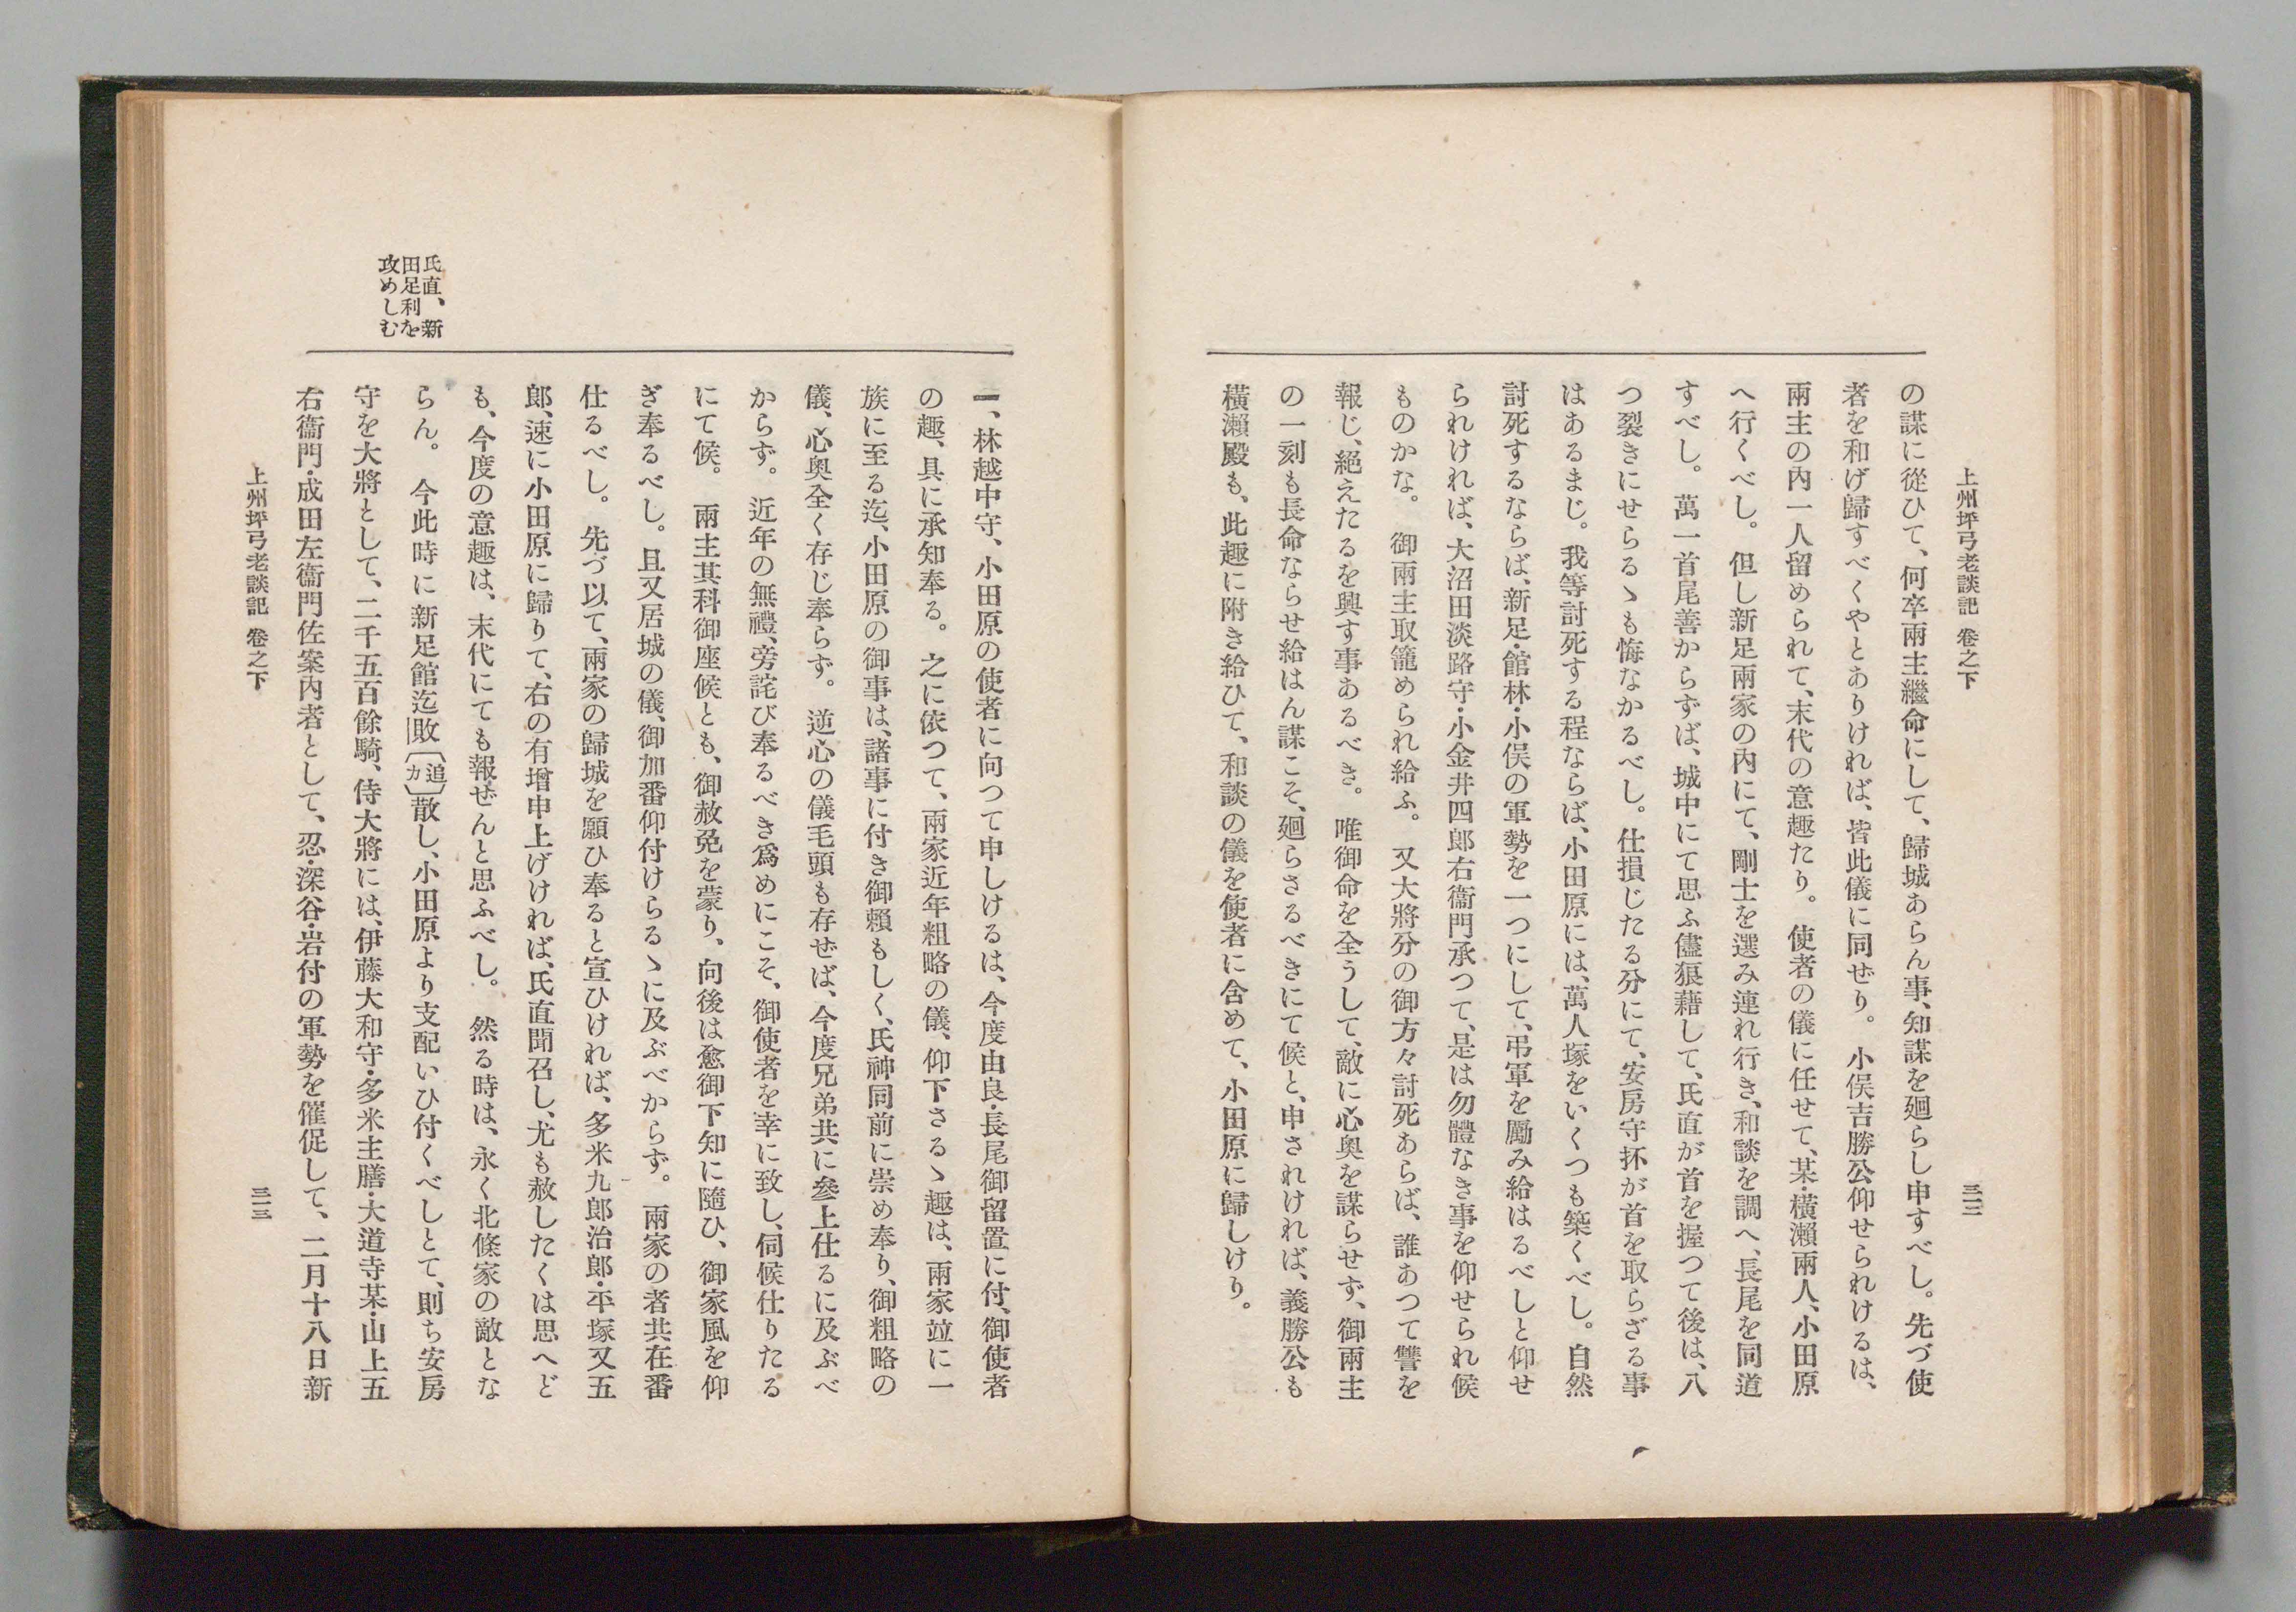 上州坪弓老談記 卷之下
三一二
の謀に從ひて、何卒兩主繼命にして、歸城あらん事、知謀を廻らし申すべし。先づ使
者を和げ歸すべくやとありければ、皆此儀に同ぜり。小俣吉勝公仰せられけるは、
兩主の內一人留められて、末代の意趣たり。使者の儀に任せて、某・橫瀨兩人、小田原
へ行くべし。但し新足兩家の內にて、剛士を選み連れ行き、和談を調へ、長尾を同道
すべし。萬一首尾善からずば、城中にて思ふ儘狼藉して、氏直が首を握つて後は、八
つ裂きにせらるゝも悔なかるべし。仕損じたる分にて、安房守抔が首を取らざる事
はあるまじ。我等討死する程ならば、小田原には、萬人塚をいくつも築くべし。自然
討死するならば、新足・館林・小俣の軍勢を一つにして、弔軍を勵み給はるべしと仰せ
られければ、大沼田淡路守・小金井四郎右衞門承つて、是は勿體なき事を仰せられ候
ものかな。御兩主取籠められ給ふ。又大將分の御方々討死あらば、誰あつて讐を
報じ、絕えたるを興す事あるべき。唯御命を全うして、敵に心奧を謀らせず、御兩主
の一刻も長命ならせ給はん謀こそ、廻らさるべきにて候と、申されければ、義勝公も
橫瀨殿も、此趣に附き給ひて、和談の儀を使者に含めて、小田原に歸しけり。
一、林越中守、小田原の使者に向つて申しけるは、今度由良・長尾御留置に付、御使者
の趣、具に承知奉る。之に依つて、兩家近年粗略の儀、仰下さるゝ趣は、兩家竝に一
族に至る迄、小田原の御事は、諸事に付き御賴もしく、氏神同前に崇め奉り、御粗略の
儀、心奧全く存じ奉らず。逆心の儀毛頭も存ぜば、今度兄弟共に參上仕るに及ぶべ
からず。近年の無禮、旁詫び奉るべき爲めにこそ、御使者を幸に致し、伺候仕りたる
にて候。兩主其科御座候とも、御赦免を蒙り、向後は愈御下知に隨ひ、御家風を仰
ぎ奉るべし。且又居城の儀、御加番仰付けらるゝに及ぶべからず。兩家の者共在番
仕るべし。先づ以て、兩家の歸城を願ひ奉ると宣ひければ、多米九郎治郎・平塚又五
郎、速に小田原に歸りて、右の有增申上げければ、氏直聞召し、尤も赦したくは思へど
も、今度の意趣は、末代にても報ぜんと思ふべし。然る時は、永く北條家の敵とな
らん。今此時に新足館迄敗〔追カ〕散し、小田原より支配いひ付くべしとて、則ち安房
氏直、新
田足利を
攻めしむ
守を大將として、二千五百餘騎、侍大將には、伊藤大和守・多米主膳・大道寺某・山上五
右衞門・成田左衞門佐案內者として、忍・深谷・岩付の軍勢を催促して、二月十八日新
上州坪弓老談記 卷之下
三一三